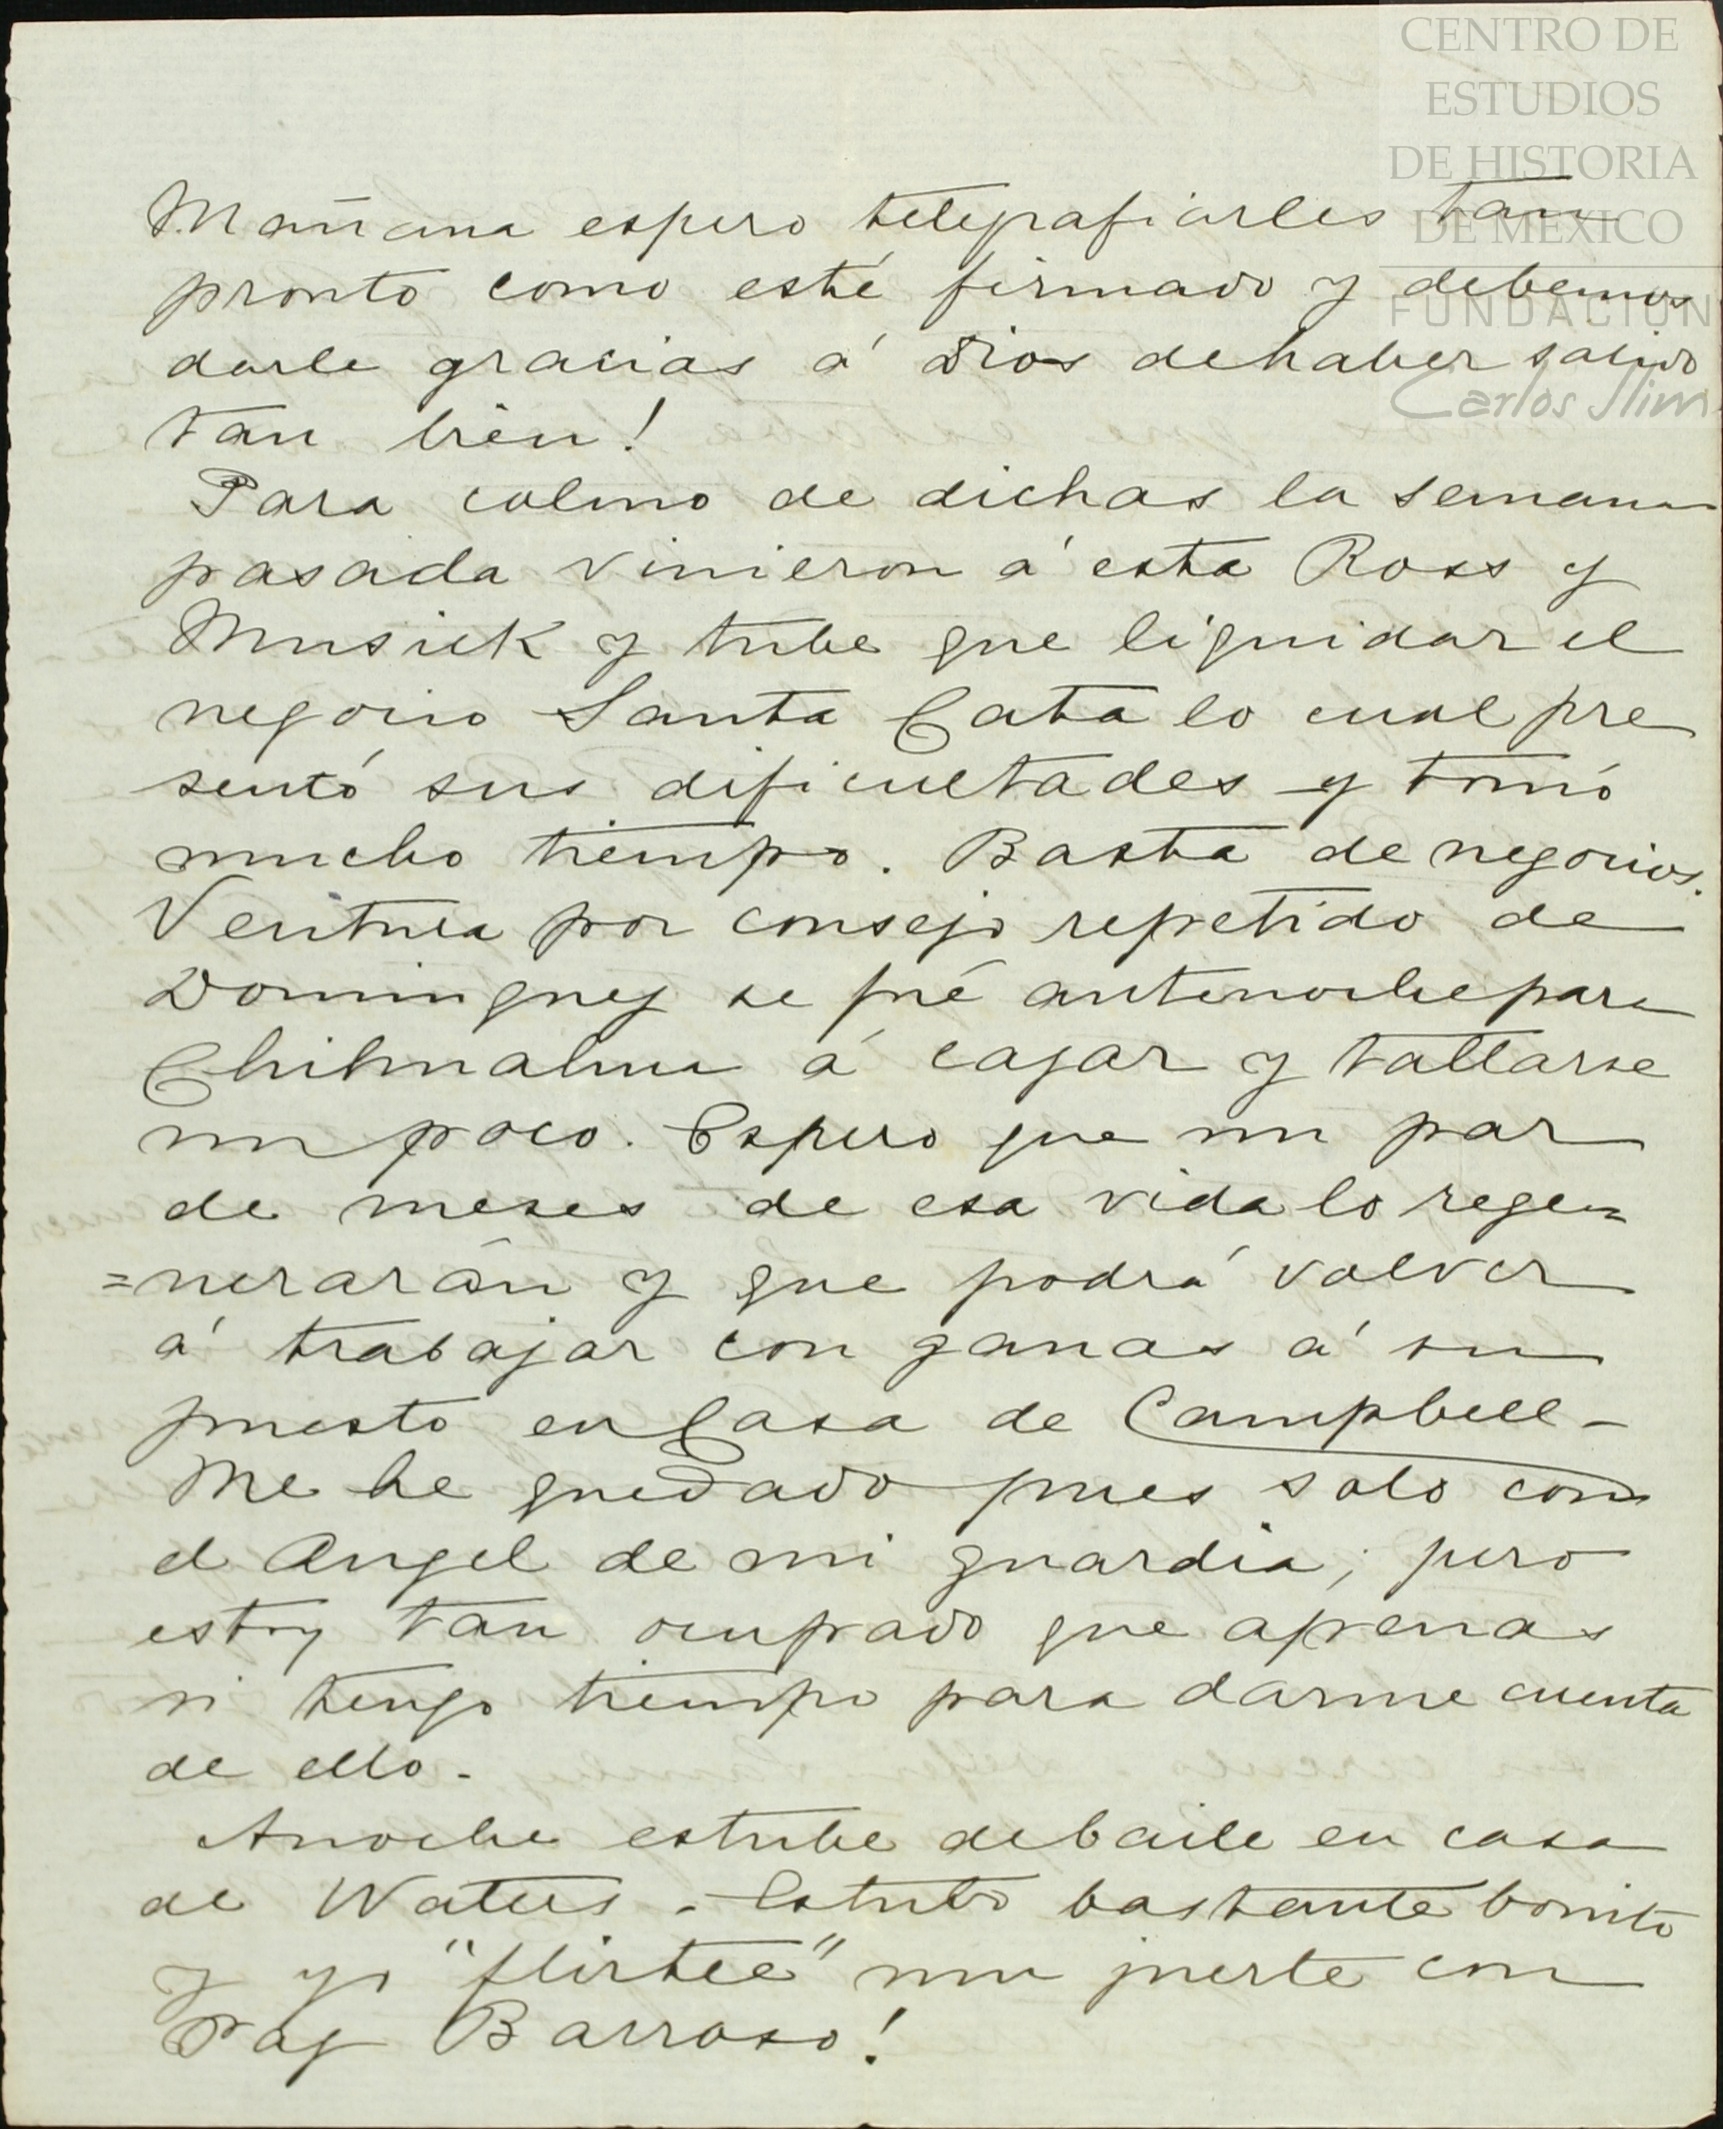 CENTRO DE
ESTUDIOS
DE HISTORIA
DE MEXICO
FUNDACION
Carlos Slim
Mañana espero telegrafiarles tan
pronto como esté firmado y debemos
darle gracias á Dios de haber salido
tan bien!
Para colmo de dichas la semana
pasada vinieron á esta Ross y
Musick y tube que liquidar el
negocio Santa Cata lo cual pre
sentó sus dificultades y tomó
mucho tiempo. Basta de negocios.
Ventura por consejo repetido de
Dominguez se fué antenoche para
Chihuahua á cazar y tallarse
un poco. Espero que un par
de meses de esa vida lo rege=
=nerarán y que podrá volver
á trabajar con ganas á su
puesto en Casa de Campbell -
Me he quedado pues solo con
el Angel de mi guardia; pero
estoy tan ocupado que apenas
si tengo tiempo para darme cuenta
de ello -
Anoche estube de baile en casa
de Waters - Estubo bastante bonito
y yo "flirteé" muy fuerte con
Paz Barroso!